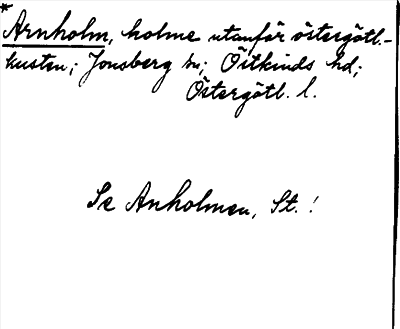 * Arnholm, holme utanför östergötl.-
kusten; Jonsberg sn; Östkinds hd;
Östergötl. l.
Se Anholmen, St.!